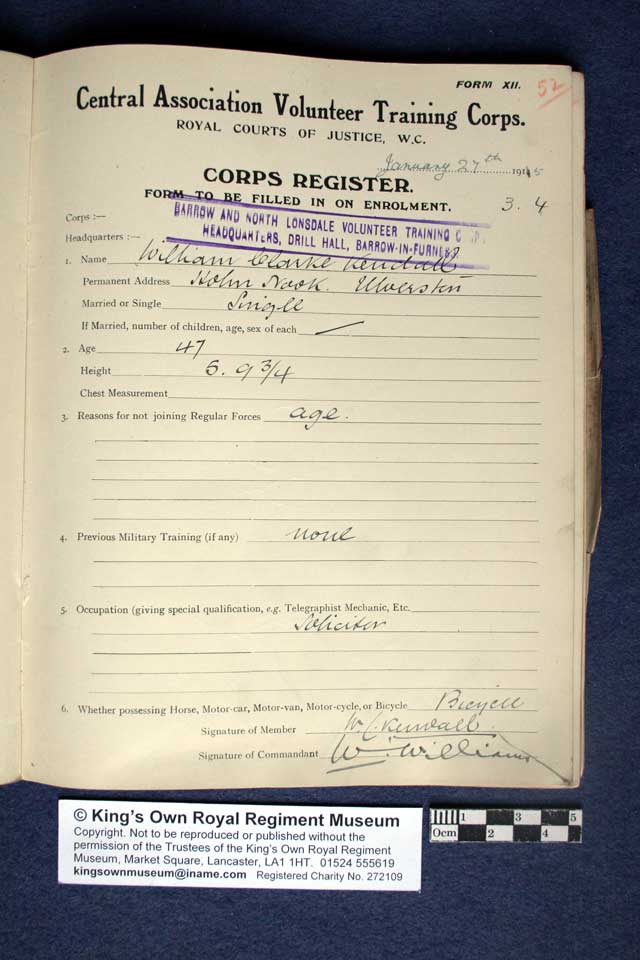 FORM XII. 52
Central Association Volunteer Training Corps.
ROYAL COURTS OF JUSTICE, W.C.
January 27th 1915
CORPS REGISTER.
FORM TO BE FILLED IN ON ENROLMENT. 3.4
Corps :— BARROW AND NORTH LONSDALE VOLUNTEER TRAINING
Headquarters :— HEADQUARTERS, DRILL HALL, BARROW-IN-FURNESS
1. Name William Clarke Kendall
Permanent Address Kohn Nook. Ulverston
Married or Single Single
If Married, number of children, age, sex of each —
2. Age 47
Height 5. 9 3/4
Chest Measurement
3. Reasons for not joining Regular Forces age.
4. Previous Military Training (if any) none
5. Occupation (giving special qualification, e.g. Telegraphist Mechanic, Etc.
Solicitor
6. Whether possessing Horse, Motor-car, Motor-van, Motor-cycle, or Bicycle Bicycle
Signature of Member W. C. Kendall.
Signature of Commandant W. Williams
© King's Own Royal Regiment Museum
Copyright. Not to be reproduced or published without the
permission of the Trustees of the King's Own Royal Regiment
Museum, Market Square, Lancaster, LA1 1HT. 01524 555619
kingsownmuseum@iname.com Registered Charity No. 272109
1 3 5
0cm 2 4